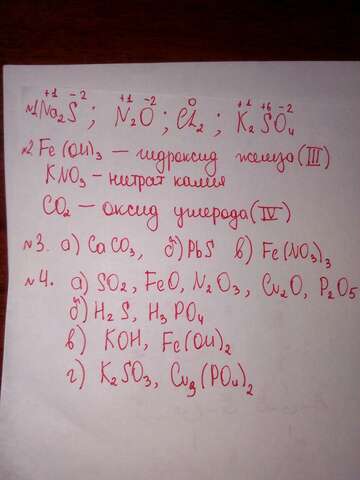 +1 -2 +1 -2 0 +1 +6 -2
№1. Na₂S; N₂O; CL₂; K₂SO₄
№2. Fe(OH)₃ — гидроксид железа (III)
KNO₃ - нитрат калия
CO₂ — оксид углерода (IV)
№3. а) CaCO₃, б) PbS в) Fe(NO₃)₃
№4. а) SO₂, FeO, N₂O₃, Cu₂O, P₂O₅
б) H₂S, H₃PO₄
в) KOH, Fe(OH)₂
г) K₂SO₃, Cu₃(PO₄)₂